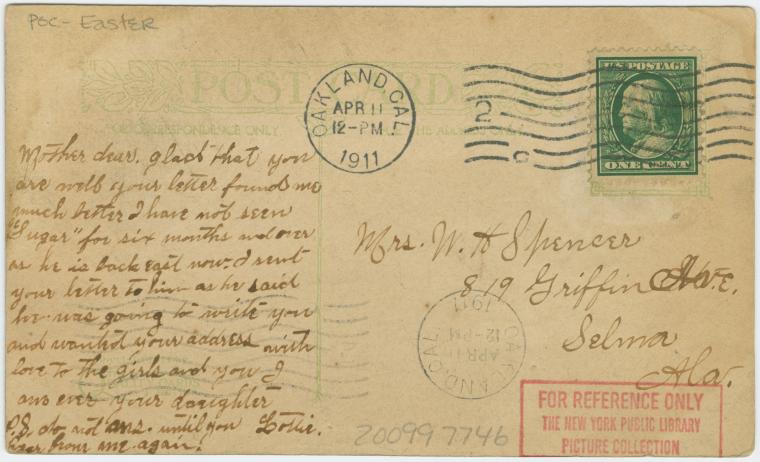 PSC- Easter
POST CARD
OAKLAND, CAL.
APR 11
12-PM
1911
U.S. POSTAGE
ONE CENT
Mother dear, glad that you
are well your letter found me
much better I have not seen
"Sugar" for six months and over
as he is back east now. I sent
your letter to him as he said
he was going to write you
and wanted your address with
love to the girls and you I
am ever your daughter
Lottie.
P.S. do not ans. until you
hear from me again.
Mrs. W. H Spencer
819 Griffin Ave.
Selma
Ala.
OAKLAND, CAL.
APR 11
12-PM
1911
200997746
FOR REFERENCE ONLY
THE NEW YORK PUBLIC LIBRARY
PICTURE COLLECTION